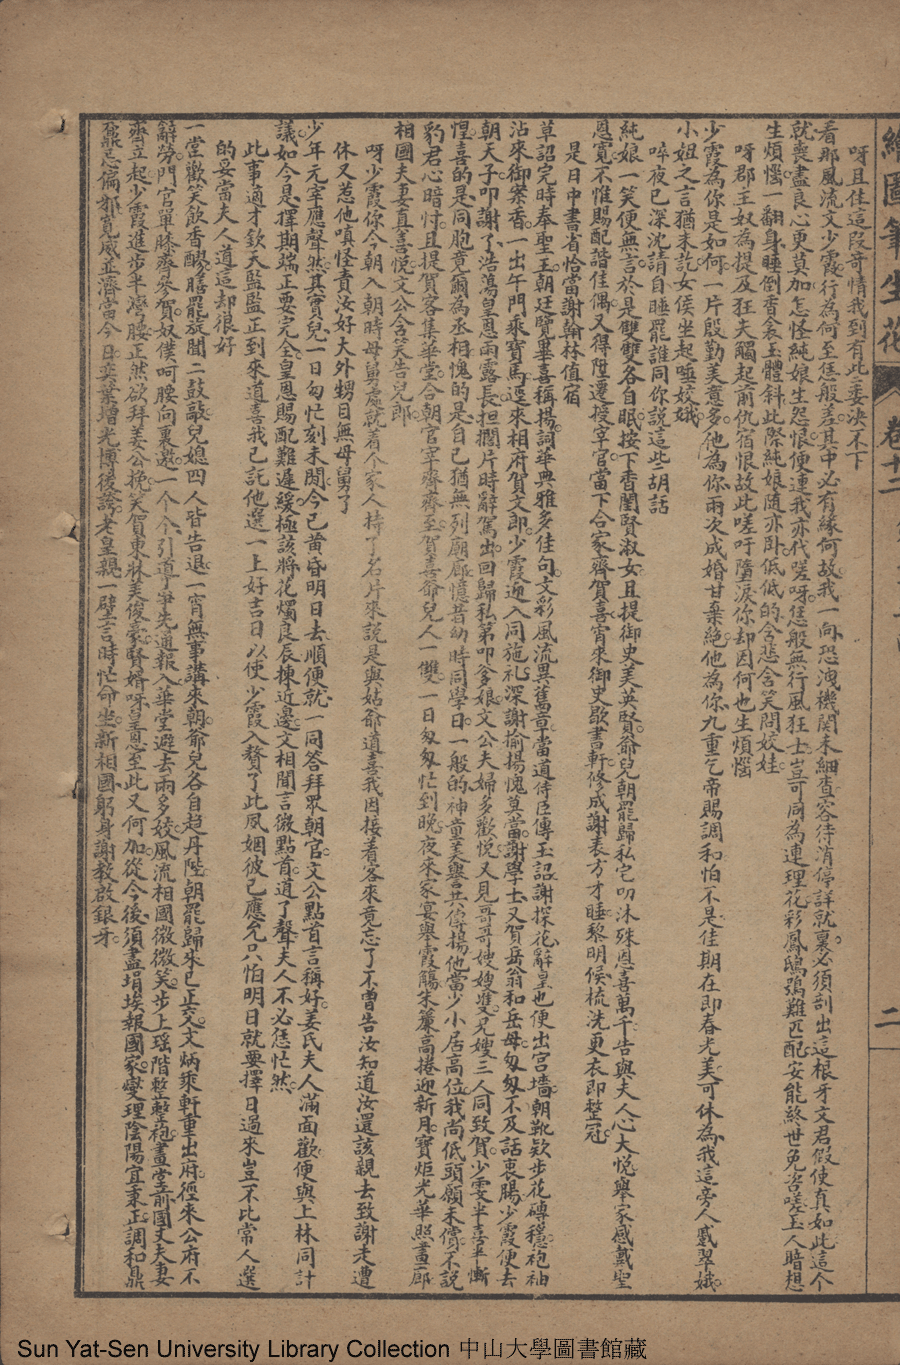 繪圖筆生花 卷十二
二
呀且住這段奇情我到有此委决不下
看那風流文少霞行為何至恁般差其中必有緣何故我一向恐洩機関未細查容待消停詳就裏必須剖出這根牙文君假使真如此這个
就喪盡良心更莫加怎怪純娘生怨恨便連我亦代嗟呀恁般無行風狂士豈可同為連理花彩鳳鴟鴞難匹配安能終世免咨嗟玉人暗想
生煩惱一翻身睡倒香衾玉體斜此際純娘随亦卧低低的含悲含笑問姣娃
呀郡王奴為提及狂夫觸起前仇宿恨故此嗟吁墮淚你却因何也生煩惱
少霞為你是如何一片殷勤美意多他為你兩次成婚甘棄絶他為你九重乞帝賜調和怕不是佳期在即春光美可休為我這旁人蹙翠娥
小姐之言猶未訖女侯坐起唾姣娥
啐夜已深沈請自睡罷誰同你説這些胡話
純娘一笑便無言於是雙雙各自眠按下香閨賢淑女且提御史美英賢爺兒朝罷歸私宅叨沐殊恩喜萬千告與夫人心大悦舉家感戴聖
恩寬不惟賜配諧佳偶又得陞遷授宰官當下合家齊賀喜宵來御史歇書軒修成謝表方才睡黎明候梳洗更衣即整冠
是日中書省恰當謝翰林值宿
草詔完時奉聖主朝廷覽畢喜稱揚詞華典雅多佳句文彩風流異舊章當道侍臣傳玉詔謝探花辭皇也便出宮墙朝靴欵步花磚穩袍袖
沾來御案香一出午門乘寶馬逕來相府賀文郎少霞迎入同施礼深謝揄揚愧莫當謝學士又賀岳翁和岳母匆匆不及話衷腸少霞便去
朝天子叩謝了浩蕩皇恩雨露長担擱片時辭駕出回歸私第叩爹娘文公夫婦多歡悦又見哥哥嫂嫂雙兄嫂三人同致賀少雯半喜半慚
惶喜的是同胞竟爾為丞相愧的是自已猶無列廟廊憶昔幼時同學日一般的神童美譽共傳揚他當少小居高位我尚低頭願未償不説
豹君心暗忖且提賀客集華堂合朝官宰齊齊至賀喜爺兒人一雙一日匆匆忙到晚夜來家宴舉霞觴朱簾高捲迎新月寶炬光華照畫廊
相國夫妻真喜悦文公含笑告兒郎
呀少霞你今朝入朝時母舅處就着个家人持了名片來説是與姑爺道喜我因接着客來竟忘了不曾告汝知道汝還該親去致謝走遭
休又惹他嗔怪責汝好大外甥目無母舅了
少年元宰應聲然其實兒一日匆忙刻未閒今已黄昏明日去順便就一同答拜眾朝官文公點首言稱好姜氏夫人滿面歡便與上林同計
議如今是擇期端正要完全皇恩賜配難遲緩極該將花燭良辰揀近邊文相聞言微點首道了聲夫人不必恁忙然
此事適才欽天監監正到來道喜我已託他選一上好吉日以使少霞入贅了此夙姻彼已應允只怕明日就要擇日過來豈不比常人選
的妥當夫人道這却很好
一堂歡笑飲香醪膳罷旋聞二鼓敲兒媳四人皆告退一宵無事講來朝爺兒各自趨丹陛朝罷歸來已正交文炳乘軒重出府徑來公府不
辭勞門官單膝齊參賀奴僕呵腰向裏邀一个个引導爭先通報入華堂避去兩多姣風流相國微微笑步上瑤階整整袍畫堂前國丈夫妻
齊立起少霞進步半灣腰正然欲拜姜公挽笑賀東牀美俊豪賢婿呀皇恩至此又何加從今後須盡涓埃報國家燮理陰陽宜秉正調和鼎
鼐忌偏邪寬威並濟當今日奕葉增光博後誇老皇親一壁言時忙命坐新相國躬身謝教啟銀牙
Sun Yat-Sen University Library Collection 中山大學圖書館藏